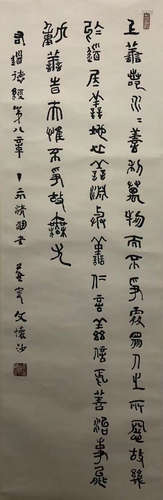 上善若水水善利萬物而不爭處眾人之所惡故幾
於道居善地心善淵與善仁言善信正善治事善能
動善時夫惟不爭故無尤
道德經第八章
文懷沙